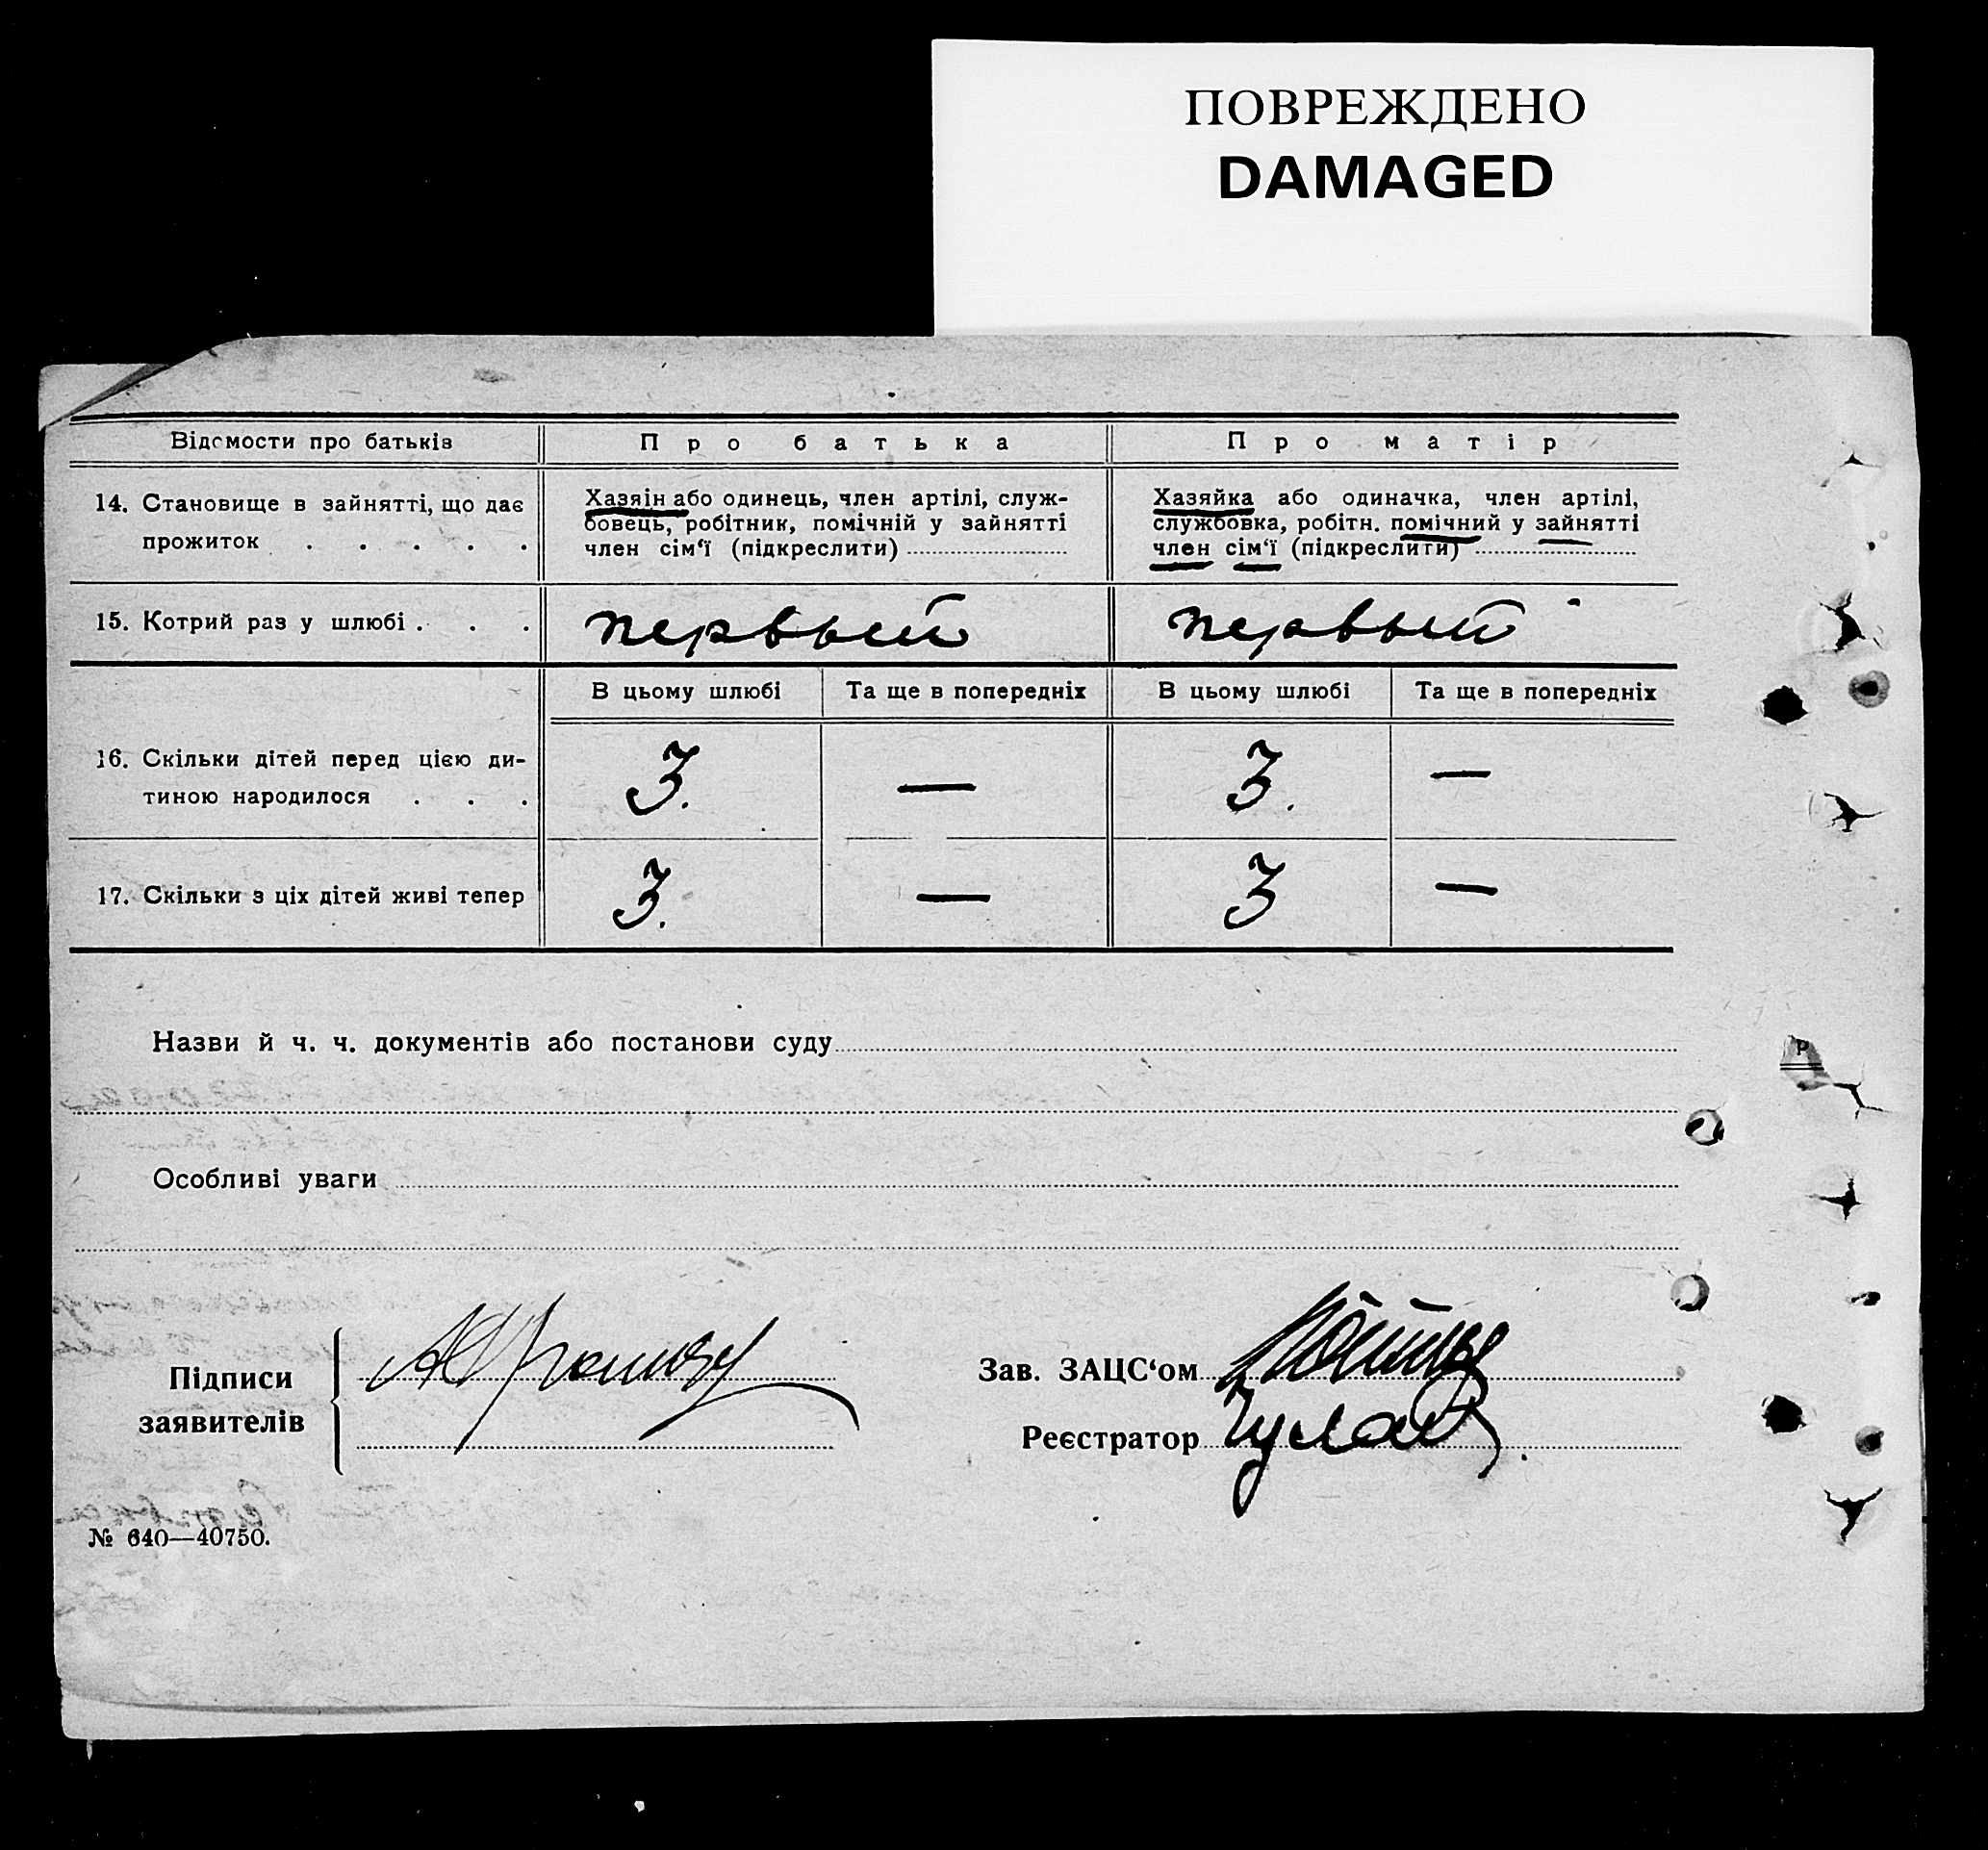 ПОВРЕЖДЕНО
DAMAGED
Відомости про батьків
Про батька
Про матір
14. Становище в зайнятті, що дає
прожиток . . . . .
Хазяін або одинець, член артілі, служ-
бовець, робітник, помічній у зайнятті
член сім‘ї (підкреслити)
Хазяйка або одиначка, член артілі,
службовка, робітн. помічний у зайнятті
член сім‘ї (підкреслити)
15. Котрий раз у шлюбі . . .
первый
первый
В цьому шлюбі
Та ще в попередніх
В цьому шлюбі
Та ще в попередніх
16. Скільки дітей перед цією ди-
тиною народилося . . .
3.
—
3.
—
17. Скільки з ціх дітей живі тепер
3.
—
3
—
Назви й ч. ч. документів або постанови суду
Р
Особливі уваги
Підписи
заявителів
Зав. ЗАЦС‘ом
Реєстратор
№ 640—40750.